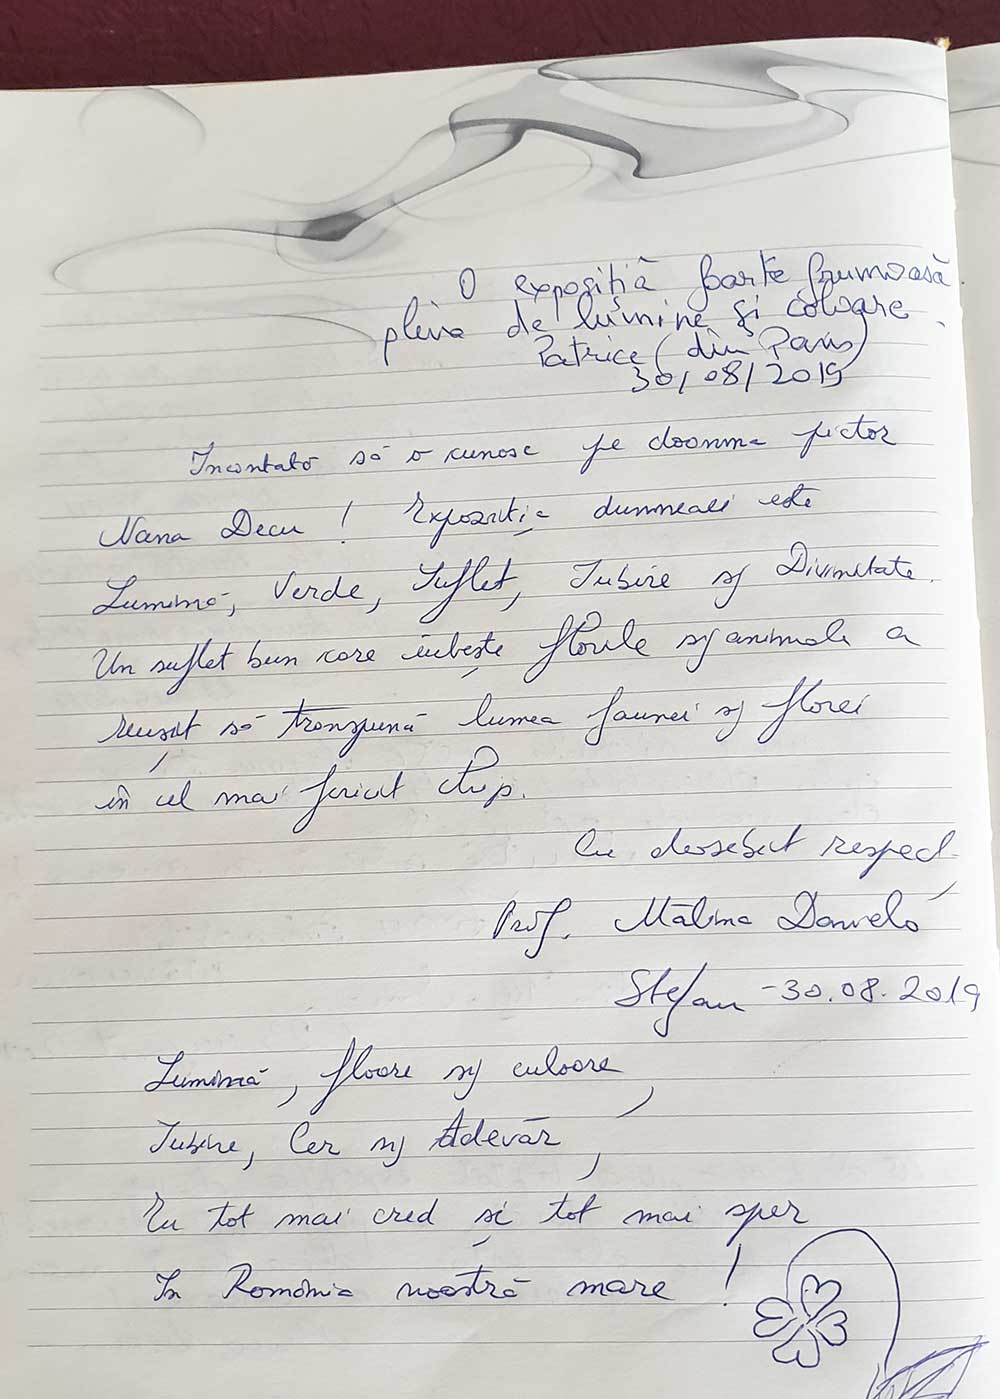 O expoziţiă foarte frumoasă
plina de lumine și coloare.
Patrice (din Paris)
30/08/2019
Incantată să o cunosc pe doamna pictor
Nana Decu ! Expoziția dumneaei este
Lumină, Verde, Suflet, Iubire și Divinitate.
Un suflet bun care iubește florile și animale a
reușit să transpună lumea faunei și florei
în cel mai fericit chip.
Cu deosebit respect,
Prof. Mălina Daniela
Stefan - 30.08.2019
Lumină, floare și culoare,
Iubire, Cer și Adevăr,
Eu tot mai cred și tot mai sper
In România noastră mare !